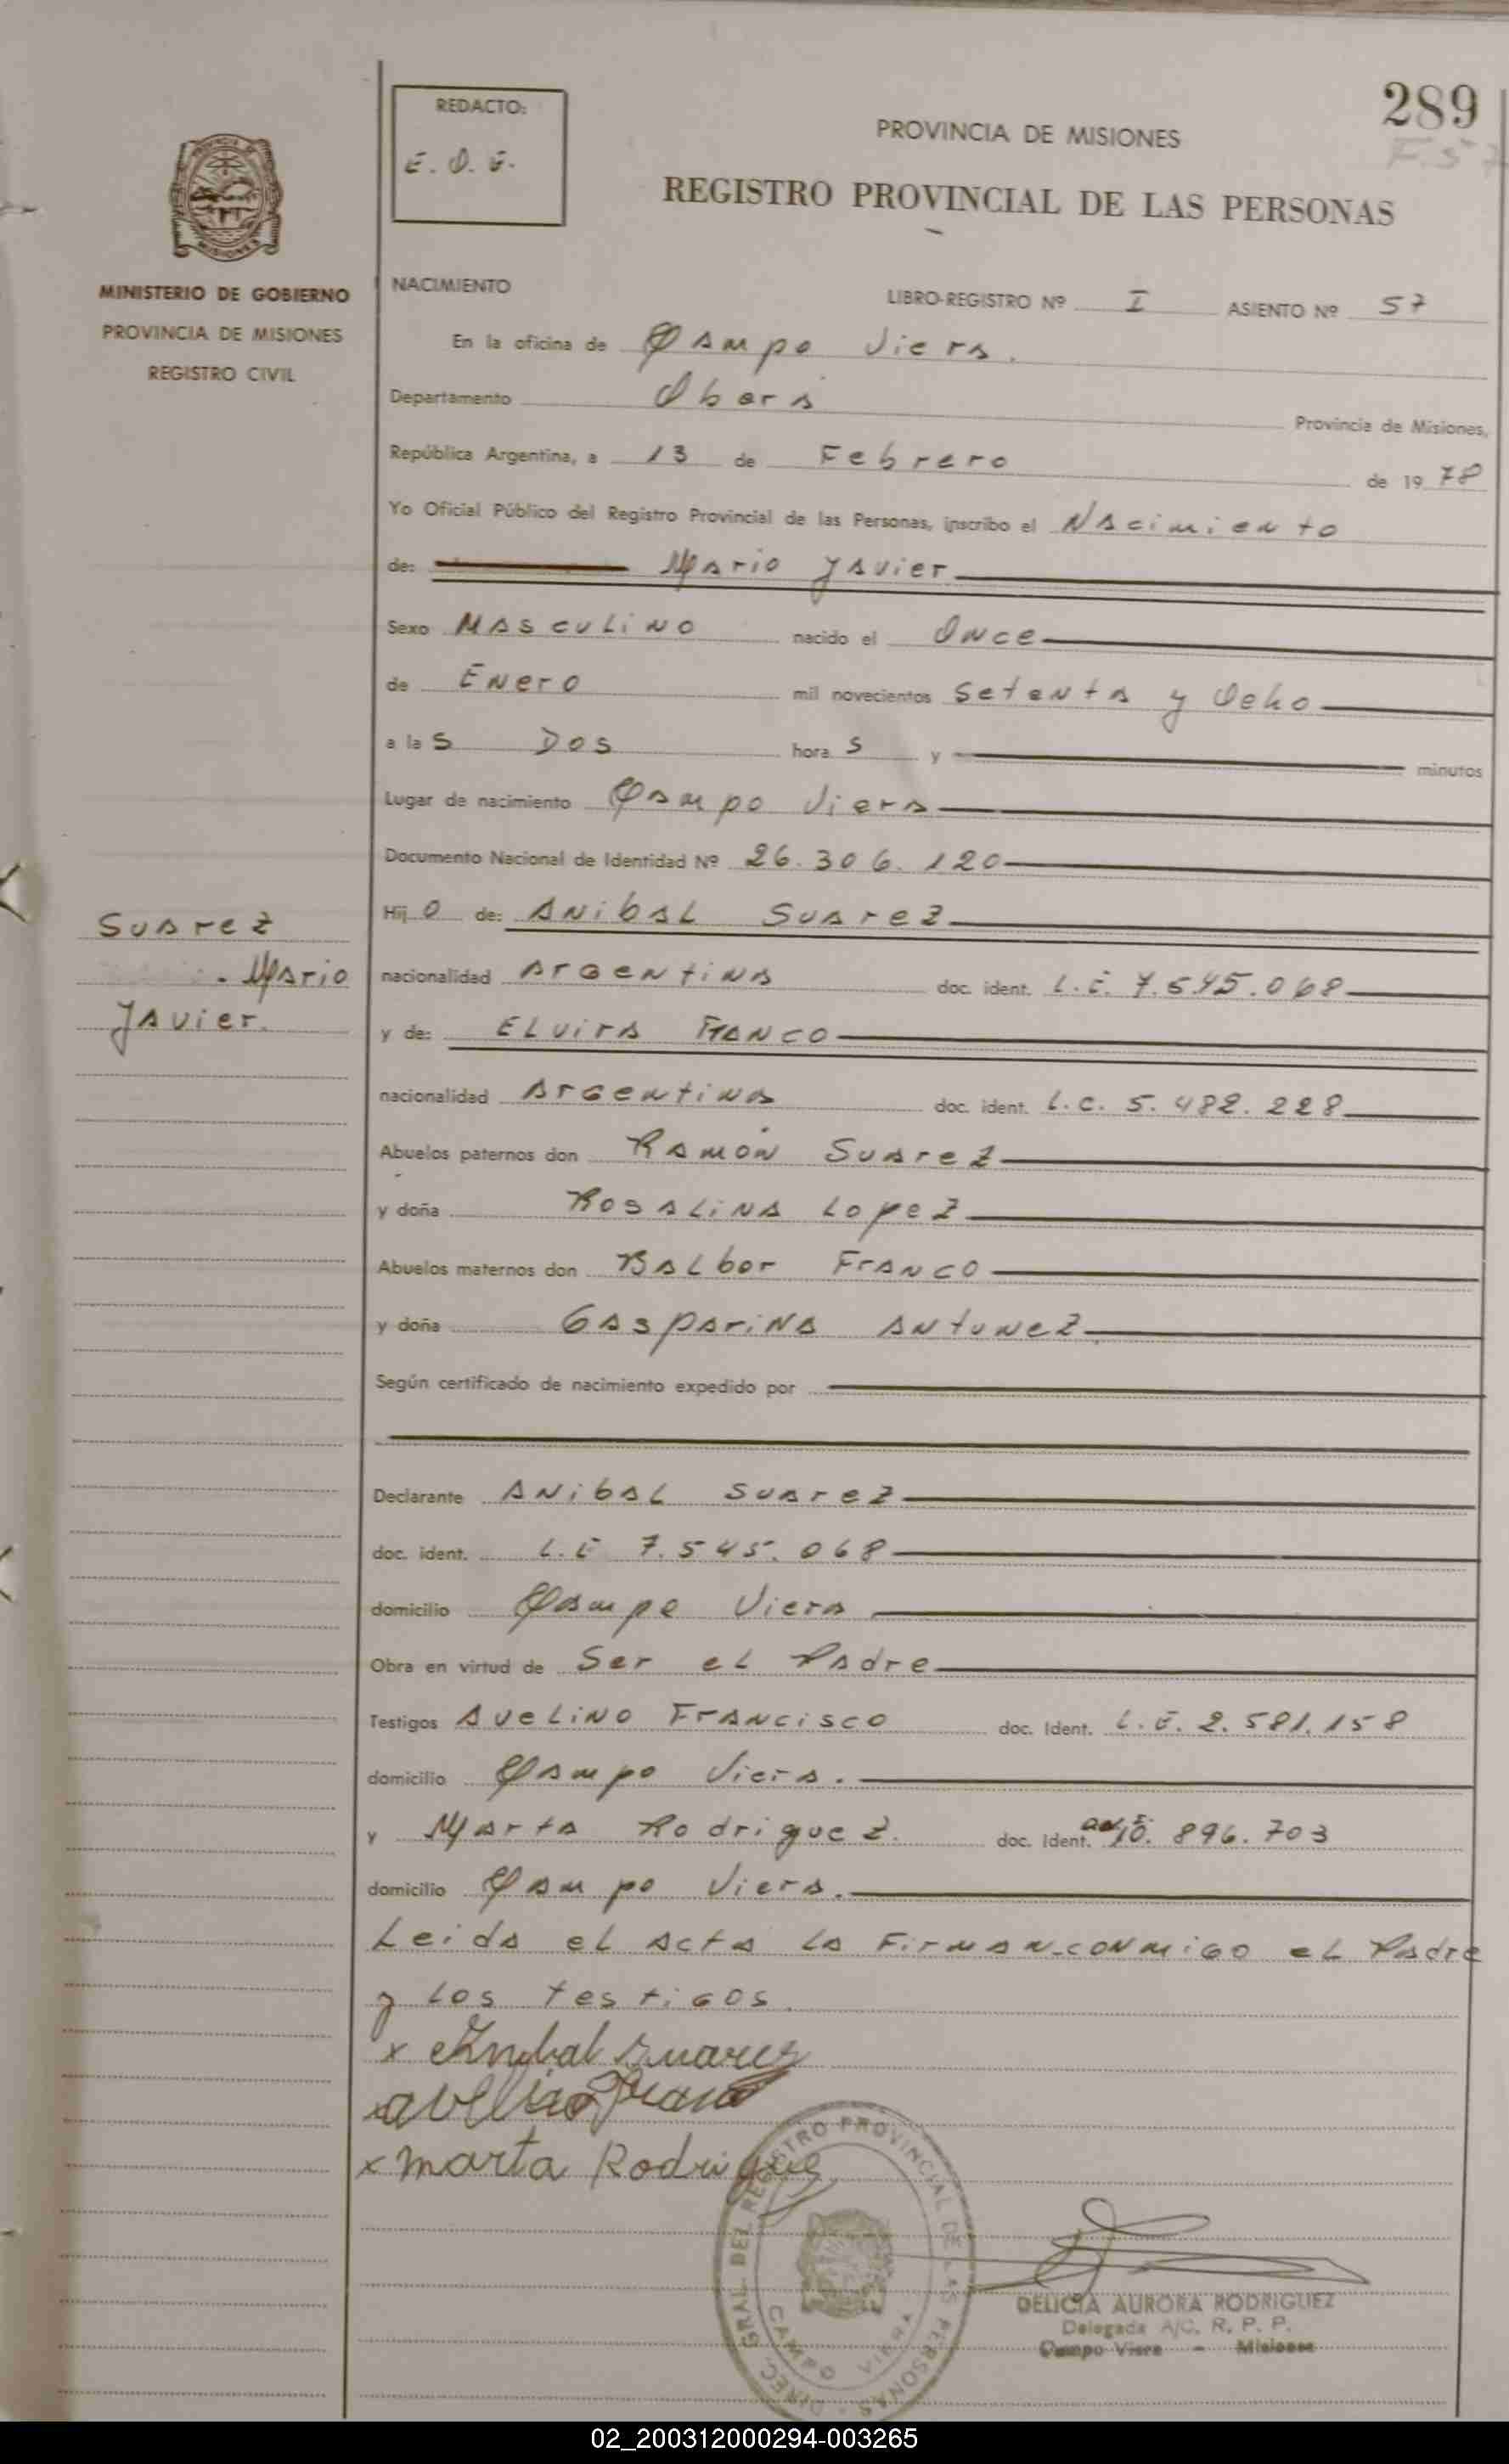 289
F. 57
REDACTO:
PROVINCIA DE MISIONES
REGISTRO PROVINCIAL DE LAS PERSONAS
PROVINCIA DE
MISIONES
MINISTERIO DE GOBIERNO
PROVINCIA DE MISIONES
REGISTRO CIVIL
NACIMIENTO
LIBRO-REGISTRO Nº I ASIENTO Nº 57
En la oficina de Campo Viera.
Departamento Obera Provincia de Misiones,
República Argentina, a 13 de Febrero de 1978
Yo Oficial Público del Registro Provincial de las Personas, inscribo el Nacimiento
de: Mario Javier
Sexo Masculino nacido el Once
de Enero mil novecientos setenta y Ocho
a las Dos horas y minutos
Lugar de nacimiento Campo Viera
Documento Nacional de Identidad Nº 26.306.120
Hijo de: Anibal Suarez
Suarez
Mario
Javier.
nacionalidad Argentina doc. ident. L.E. 7.545.068
y de: Elvira Franco
nacionalidad Argentina doc. ident. L.C. 5.482.228
Abuelos paternos don Ramón Suarez
y doña Rosalina Lopez
Abuelos maternos don Balbor Franco
y doña Gasparina Antunez
Según certificado de nacimiento expedido por
Declarante Anibal Suarez
doc. ident. L.E 7.545.068
domicilio Campo Viera
Obra en virtud de Ser el Padre
Testigos Avelino Francisco doc. Ident. L.E. 2.581.158
domicilio Campo Viera.
y Marta Rodriguez. doc. Ident. 10.896.703
domicilio Campo Viera.
Leida el acta la Firman conmigo el Padre
y los testigos.
x Anibal Suarez
x marta Rodriguez
DIREC. GRAL. DEL REGISTRO PROVINCIAL DE LAS PERSONAS
CAMPO VIERA
DELICIA AURORA RODRIGUEZ
Delegada A/C. R. P. P.
Campo Viera - Misiones
02_200312000294-003265